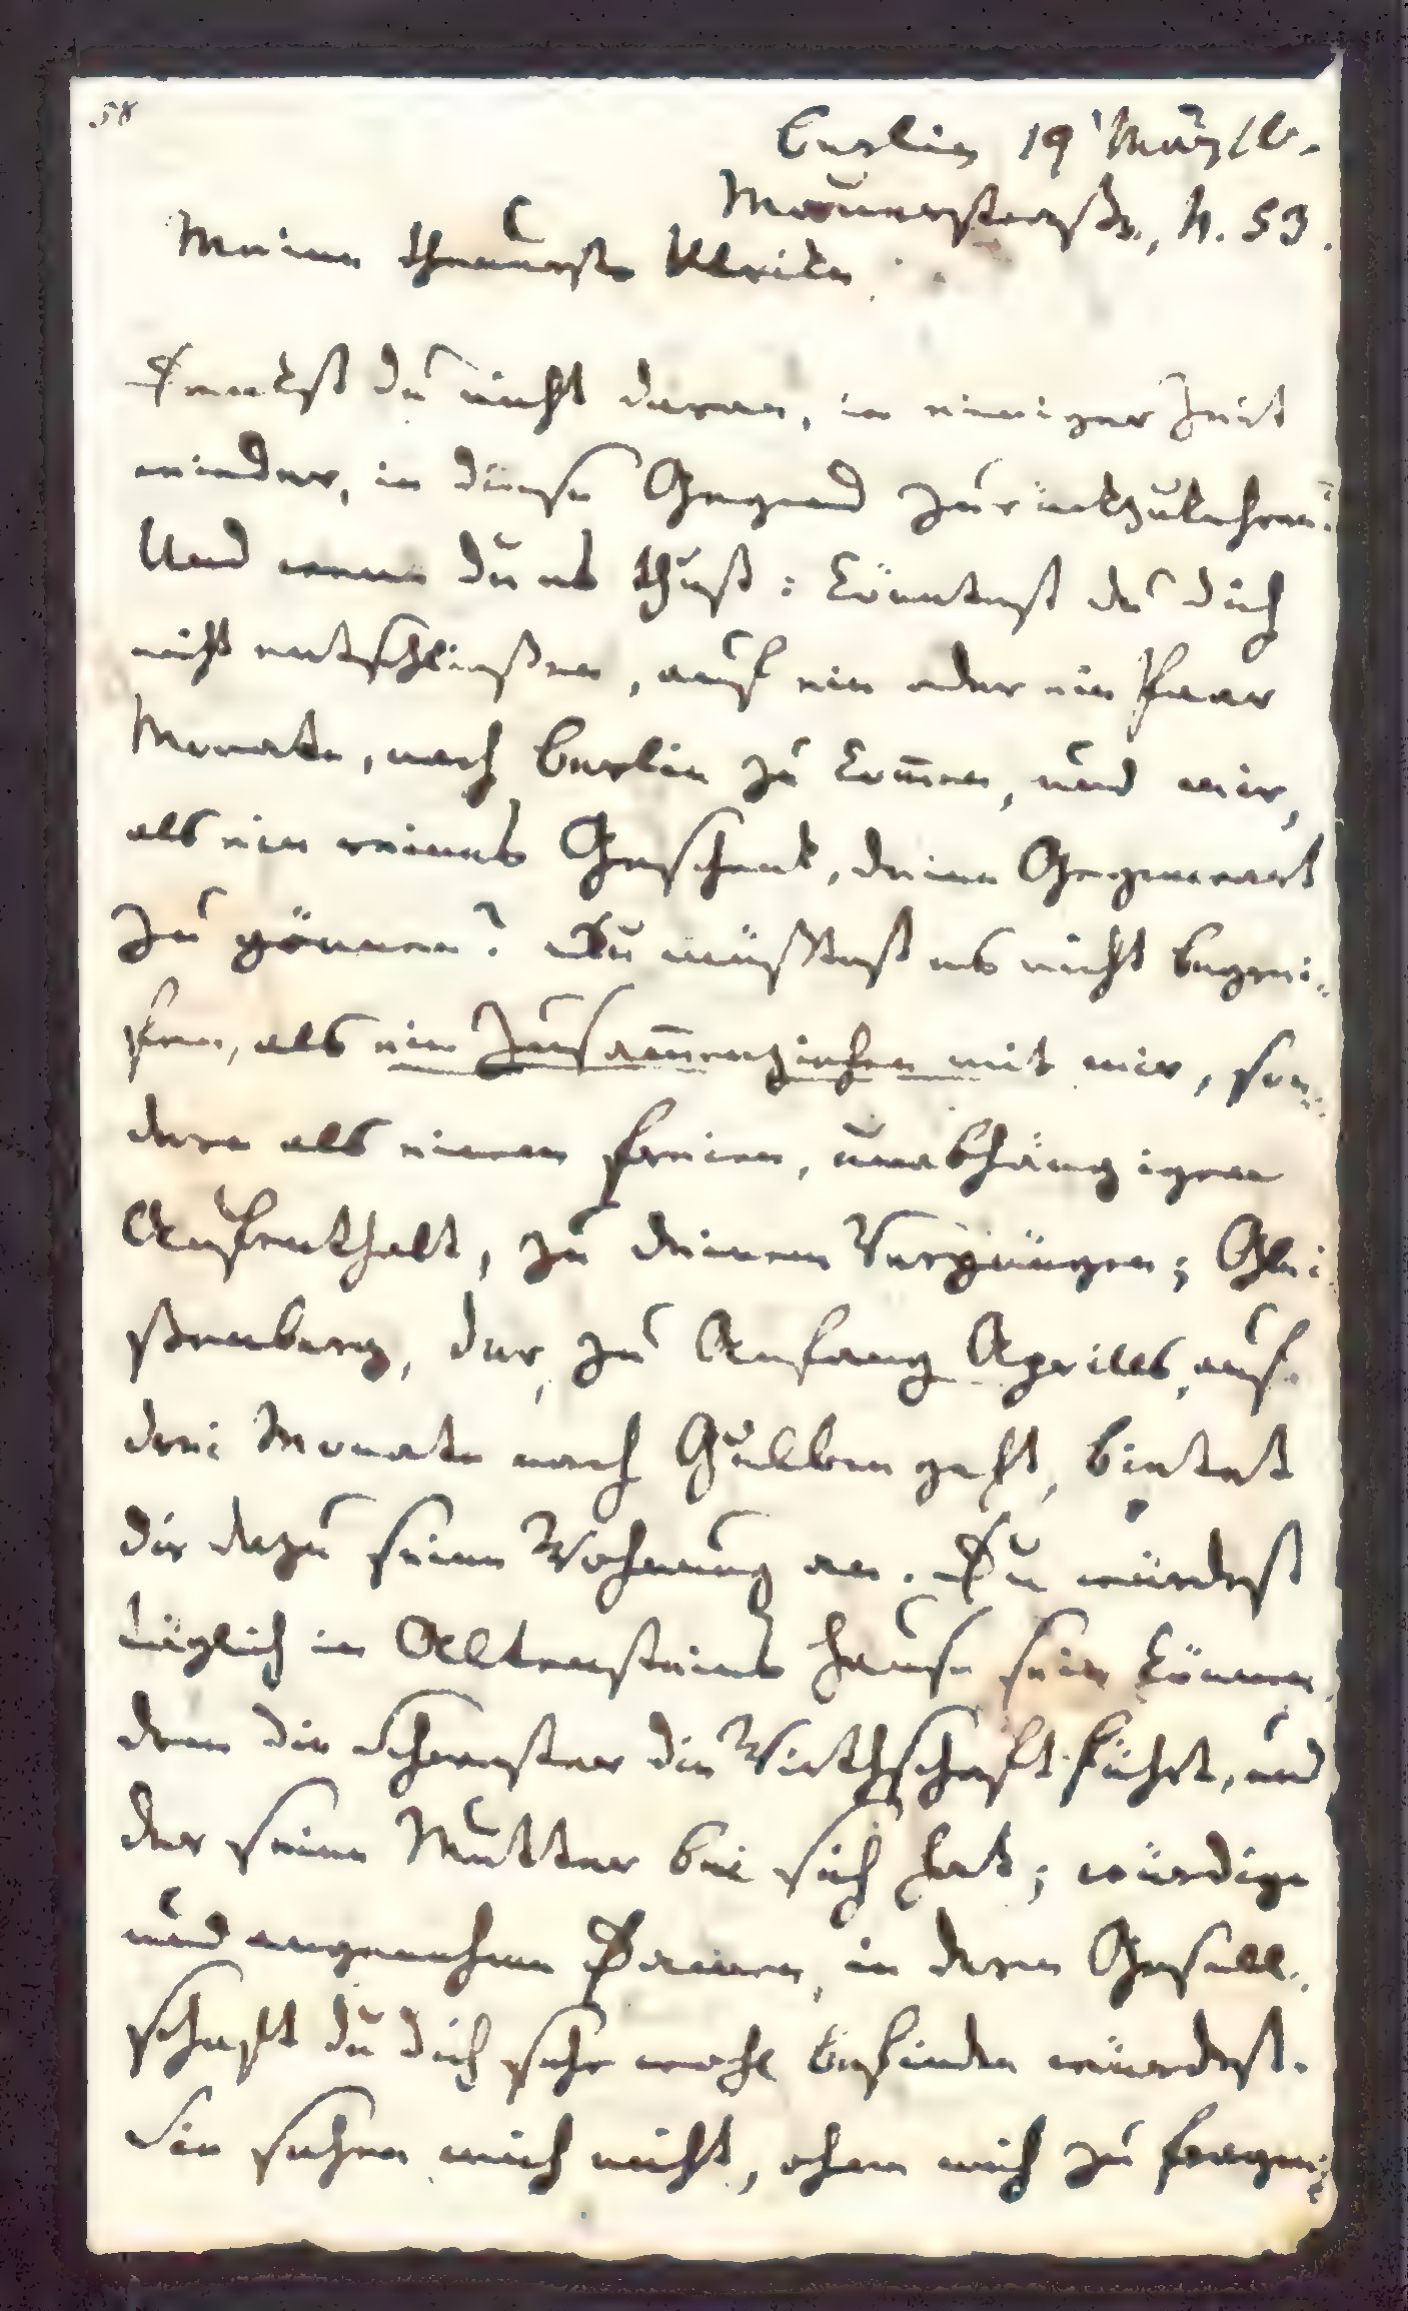 58
Berlin 19' März 10.
Mauerstraße, N. 53.
Meine theuerste Ulrike
Denkst du nicht daran, in einiger Zeit
wieder, in diese Gegend zurückzukehren?
Und wenn du es thust: könntest du dich
nicht entschließen, auf ein oder ein Paar
Monate, nach Berlin zu kom̅en, und mir,
als ein reines Geschenk, deine Gegenwart
zu gönnen? Du müßtest es nicht begrei-
fen, als ein Zusam̅enziehen mit mir, son-
dern als einen freien, unabhängigen
Aufenthalt, zu deinem Vergnügen; Glei
ßenberg, der, zu Anfang Aprills, auf
drei Monate nach Gulben geht, bietet
dir dazu seine Wohnung an. Du würdest
täglich in Altensteins Hause sein können,
dem die Schwester die Wirthschaft führt, und
der seine Mutter bei sich hat; würdige
und angenehme Damen, in deren Gesell-
schaft du dich sehr wohl befinden würdest.
Sie sehen mich nicht, ohne mich zu fragen: